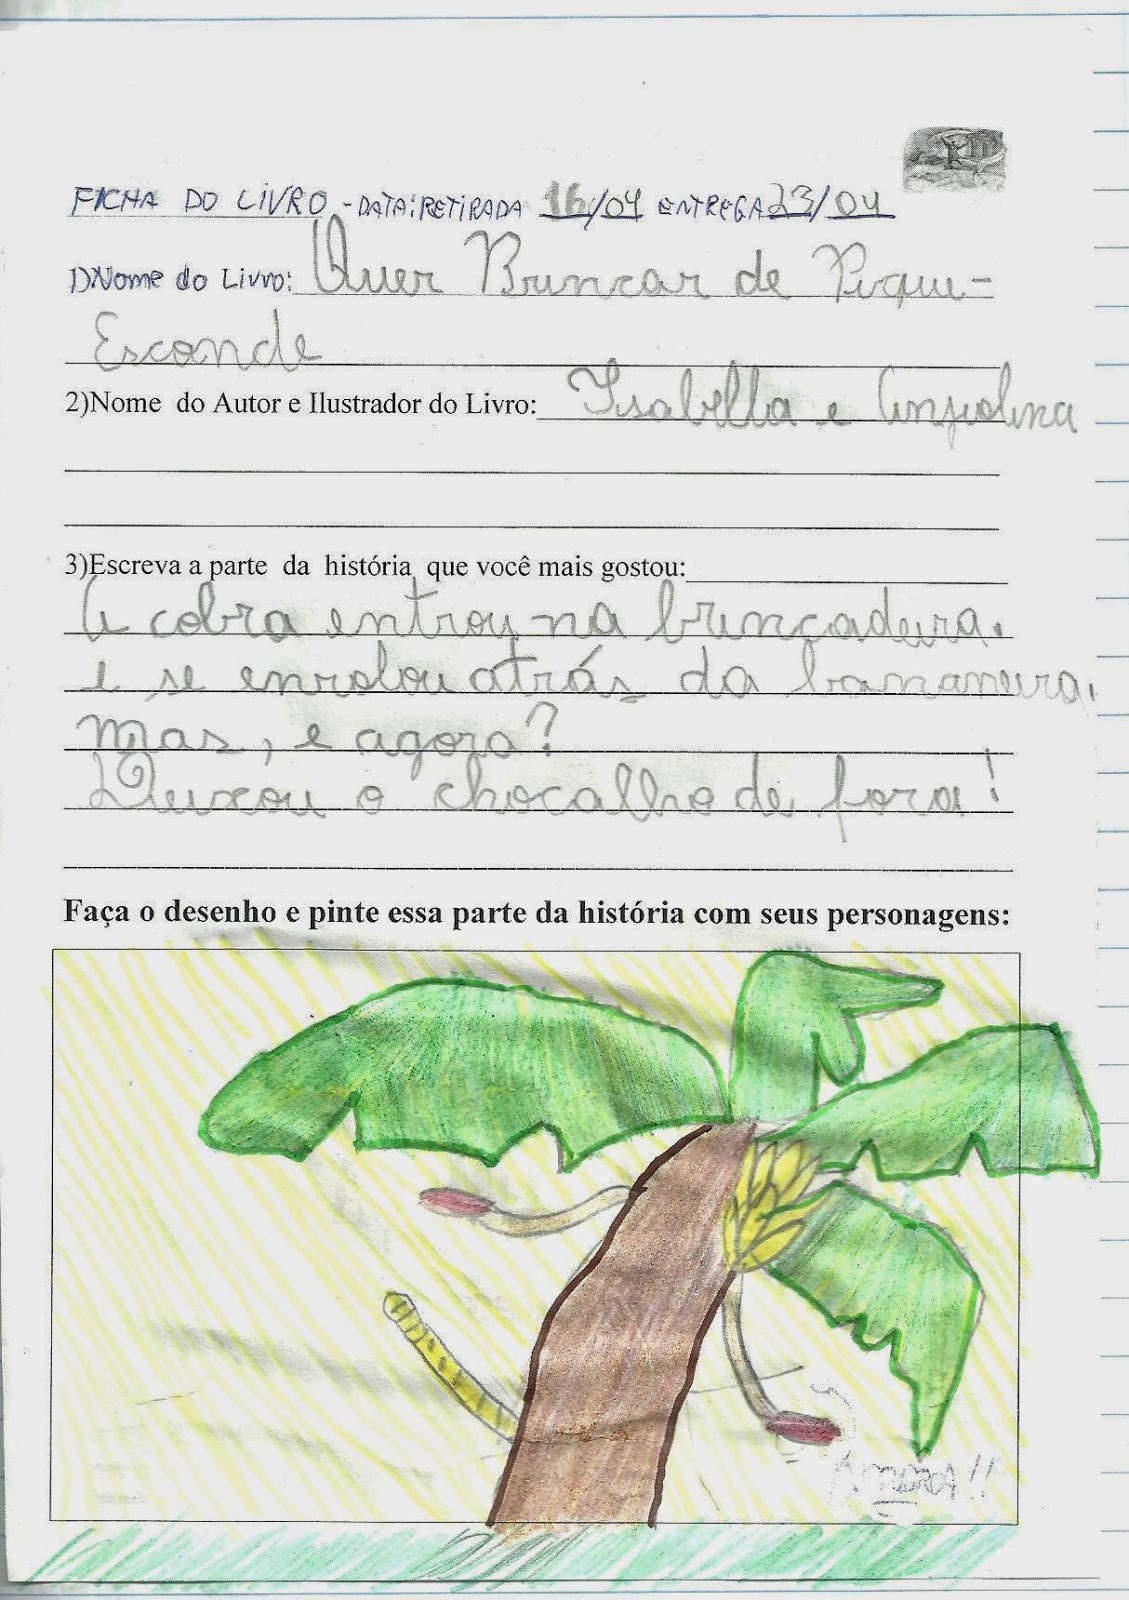 FICHA DO LIVRO - DATA: RETIRADA 16/04 ENTREGA 23/04
1)Nome do Livro: Quer Brincar de Pique-
Esconde
2)Nome do Autor e Ilustrador do Livro: Isabella e Angiolina
3)Escreva a parte da história que você mais gostou:
A cobra entrou na brincadeira.
e se enrolou atrás da bananeira.
Mas, e agora?
Deixou o chocalho de fora!
Faça o desenho e pinte essa parte da história com seus personagens: